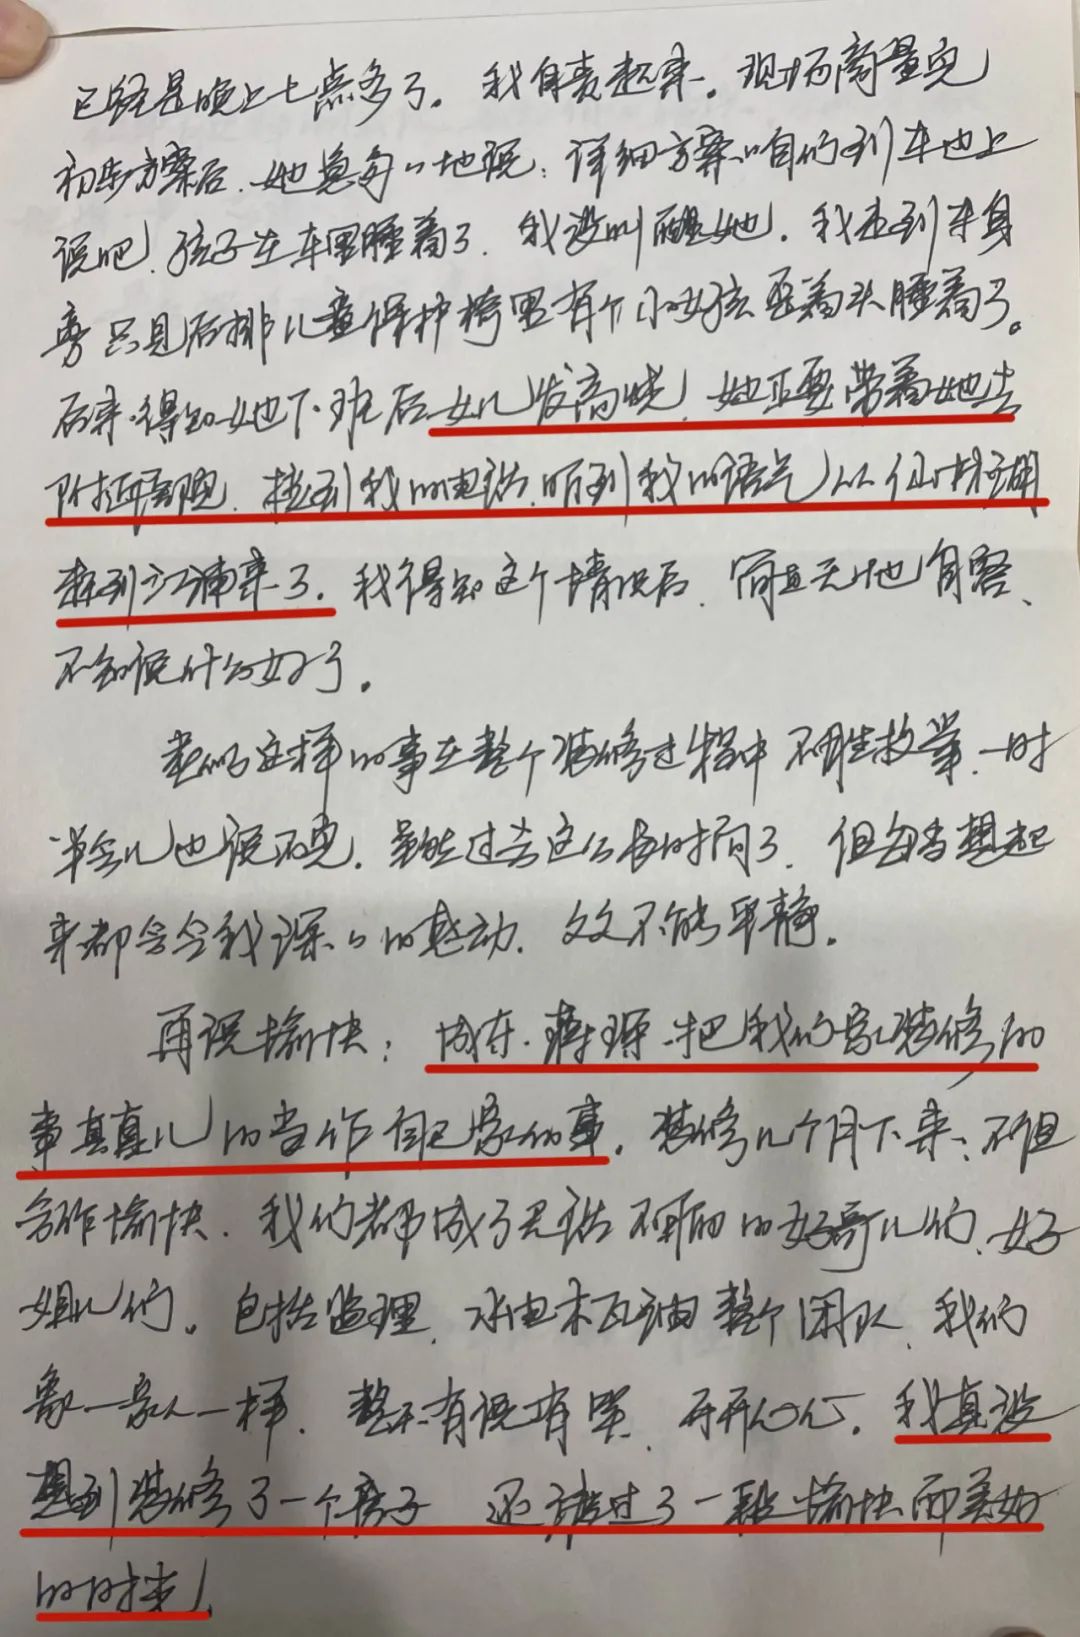 已经是晚上七点多了。我自责起来。现场商量完
初步方案后，她急匆匆地说：详细方案咱们到车边上
说吧，孩子在车里睡着了，我没叫醒她。我走到车身
旁只见后排儿童保护椅里有个小女孩歪着头睡着了。
后来得知她下班后女儿发高烧，她正要带着她去
附近医院，接到我的电话，听到我的语气从仙林湖
赶到江浦来了。我得知这个情况后，简直无地自容、
不知说什么好了。
类似这样的事在整个装修过程中不胜枚举，一时
半会儿也说不完，虽然过去这么长时间了，但每当想起
来都会令我深深的感动，久久不能平静。
再说愉快：成存、蒋琛把我们家装修的
事真真儿的当作自己家的事。装修几个月下来，不但
合作愉快，我们都成了无话不说的好哥儿们、好
姐儿们。包括监理，水电木瓦油整个团队，我们
象一家人一样，整天有说有笑，开开心心。我真没
想到装修了一个房子 还度过了一段愉快而美好
的时光！